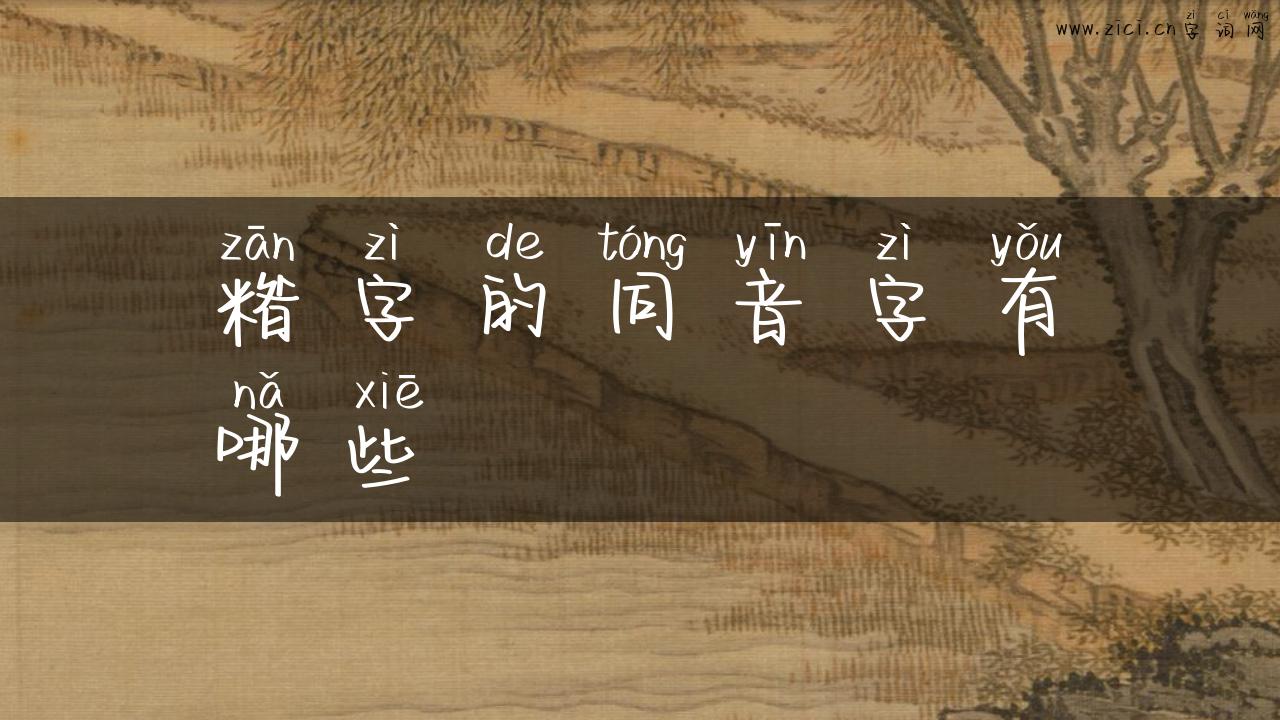 zì cí wǎng
www.zici.cn 字 词 网
zān zì de tóng yīn zì yǒu
糌 字 的 同 音 字 有
nǎ xiē
哪 些